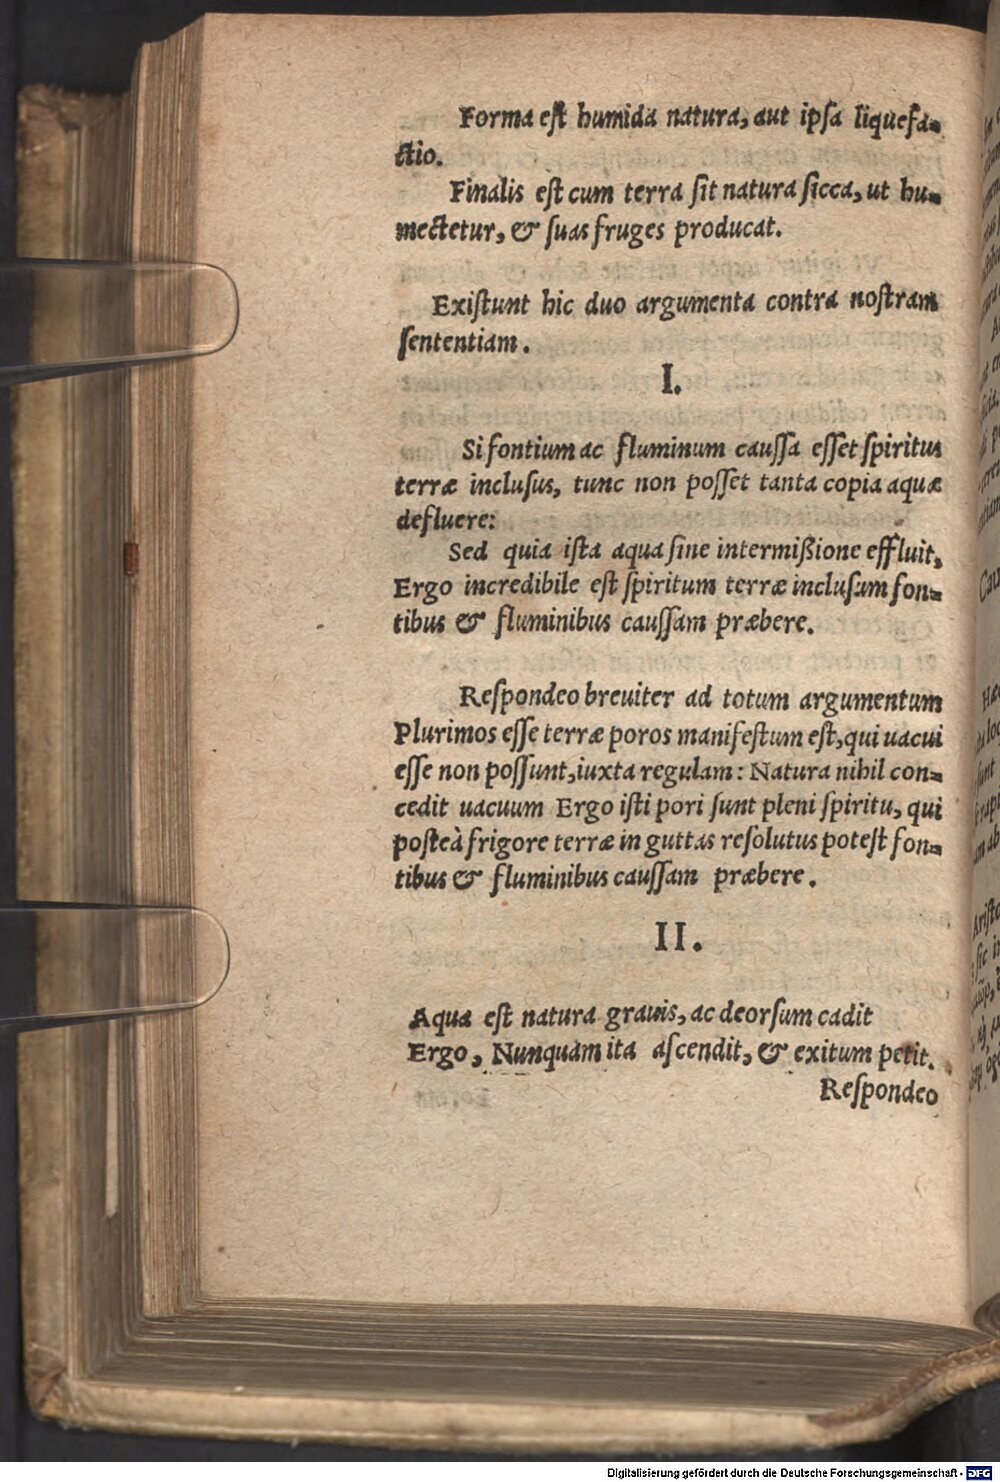 Forma eſt humida natura, aut ipſa liquefa-
ctio.
Finalis eſt cum terra ſit natura ſicca, ut hu-
mectetur, & ſuas fruges producat.
Exiſtunt hic duo argumenta contra noſtram
ſententiam.
I.
Si fontium ac fluminum cauſſa eſſet ſpiritus
terræ incluſus, tunc non poſſet tanta copia aquæ
defluere:
Sed quia iſta aqua ſine intermißione effluit,
Ergo incredibile eſt ſpiritum terræ incluſum fon-
tibus & fluminibus cauſſam præbere.
Reſpondeo breuiter ad totum argumentum
Plurimos eſſe terræ poros manifeſtum eſt, qui uacui
eſſe non poſſunt, iuxta regulam: Natura nihil con-
cedit uacuum Ergo iſti pori ſunt pleni ſpiritu, qui
poſteà frigore terræ in guttas reſolutus poteſt fon-
tibus & fluminibus cauſſam præbere.
II.
Aqua eſt natura grauis, ac deorſum cadit
Ergo, Nunquam ita aſcendit, & exitum petit.
Reſpondeo
Digitalisierung gefördert durch die Deutsche Forschungsgemeinschaft - DFG